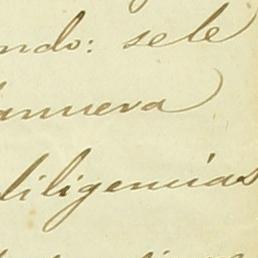 ndo: sele
anueva
diligencias